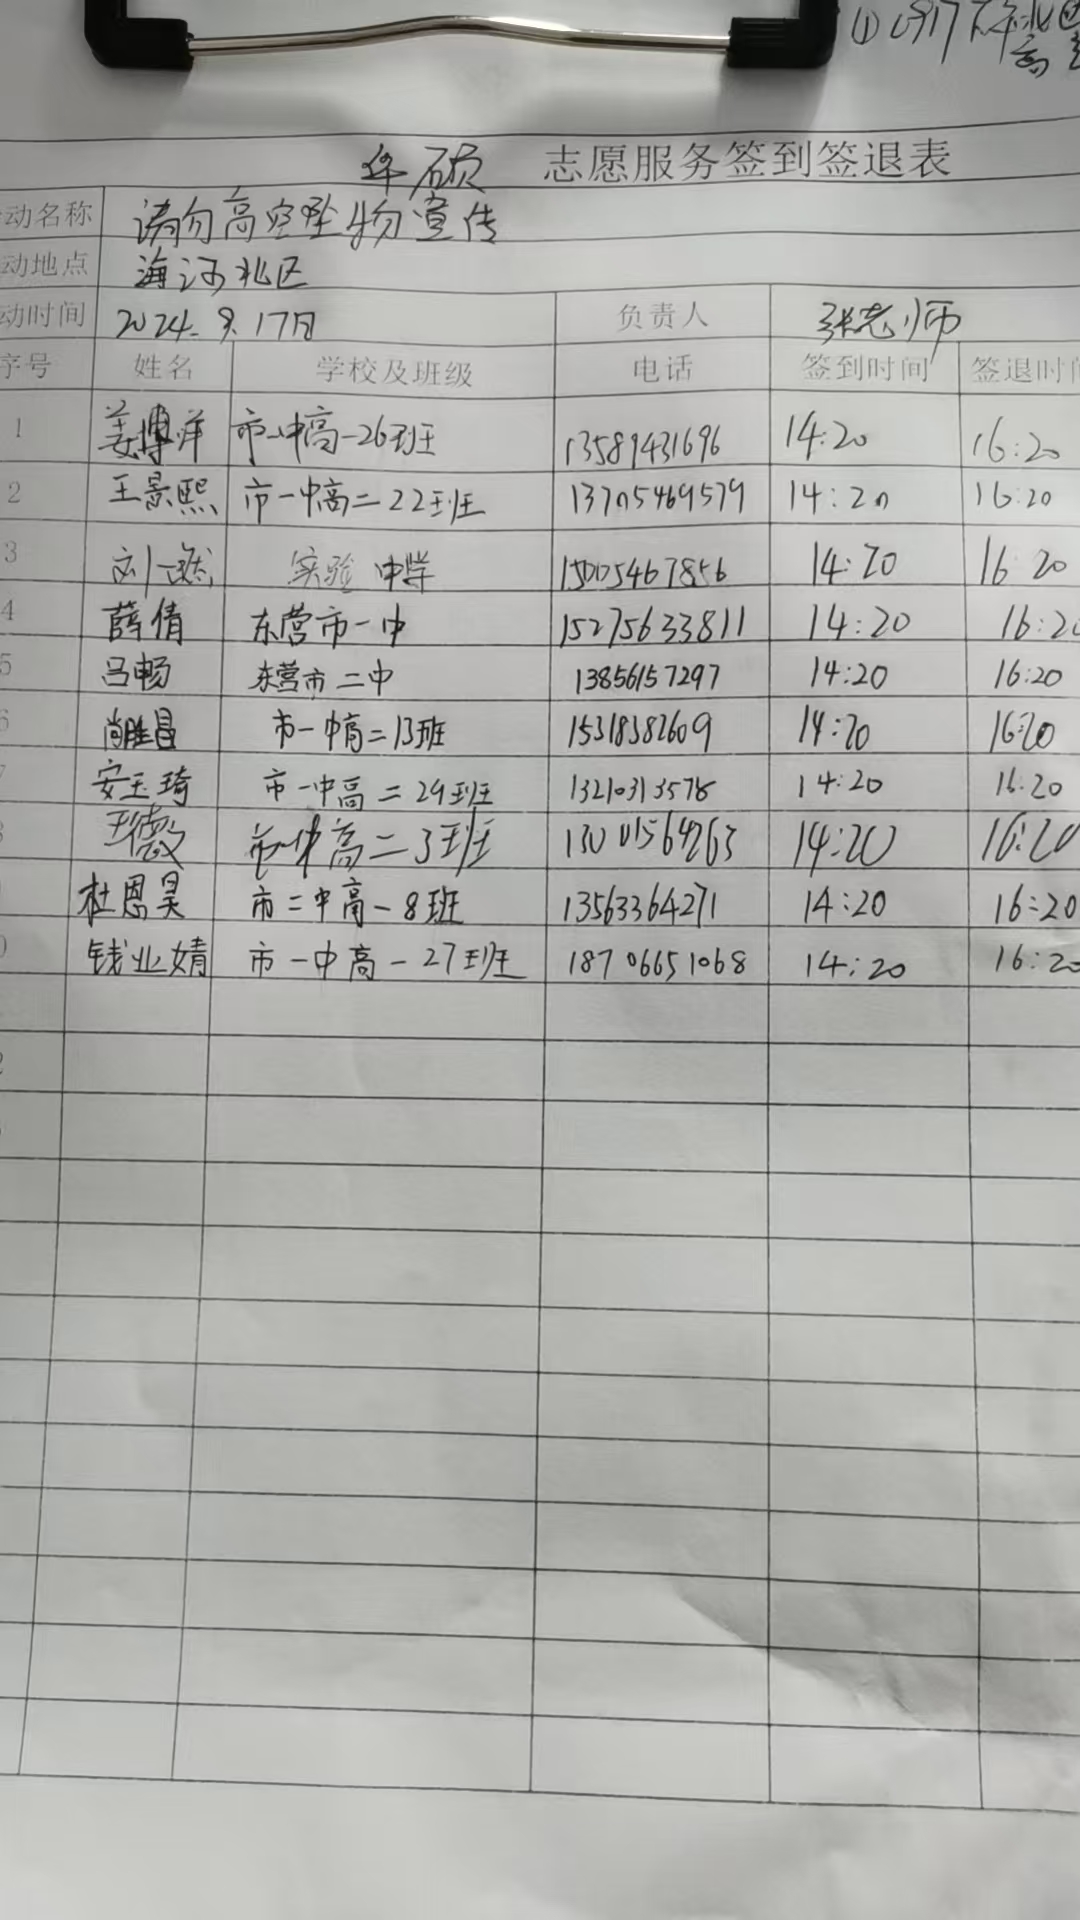 志愿服务签到签退表
动名称 请勿高空坠物宣传
动地点 海河北区
动时间 2024.9.17日 负责人 张老师
序号 姓名 学校及班级 电话 签到时间 签退时间
1 姜博洋 市一中高一26班 13589431696 14:20 16:20
2 王景熙 市一中高二22班 13705469579 14:20 16:20
3 刘一然 实验中学 15005467856 14:20 16:20
4 薛倩 东营市一中 15275633811 14:20 16:20
5 吕畅 东营市二中 13856157297 14:20 16:20
尚胜昌 市一中高二13班 15318382609 14:20 16:20
安玉琦 市一中高二29班 13210313578 14:20 16:20
市一中高二3班 13001564263 14:20 16:20
杜恩昊 市二中高一8班 13563364271 14:20 16:20
钱业婧 市一中高一27班 18706651068 14:20 16:20